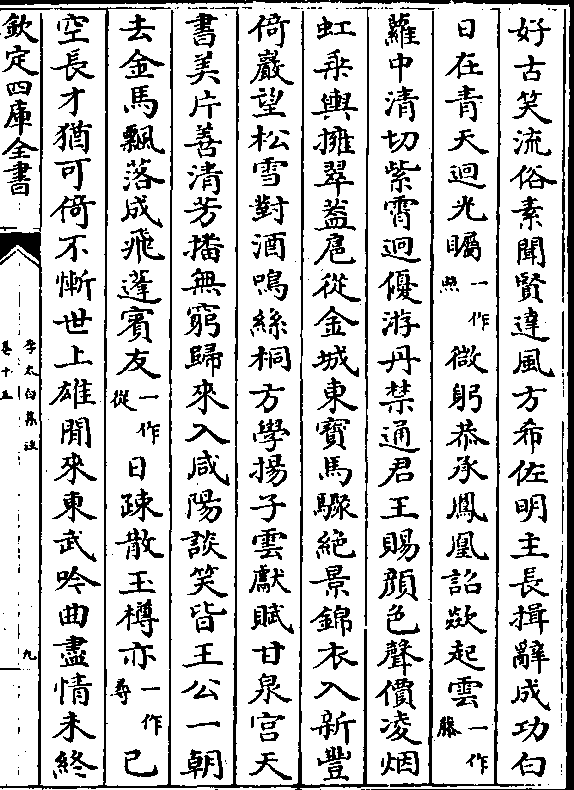 好古笑流俗素聞賢達風方希佐明主長揖辭成功白
日在青天迴光矚一作照微躬恭承鳳凰詔歘起雲一作籐
蘿中清切紫霄迥優游丹禁通君王賜顔色聲價凌烟
虹乗輿擁翠蓋扈從金城東寶馬驟絶景錦衣入新豐
倚巖望松雪對酒鳴絲桐方學揚子雲獻賦甘泉宫天
書美片善清芳播無窮歸來入咸陽談笑皆王公一朝
去金馬飄落成飛蓬賓友一作從日疎散玉樽亦一作尋已
空長才猶可倚不慚世上雄閒來東武吟曲盡情未終
欽定四庫全書
李太白集注
卷十五
九